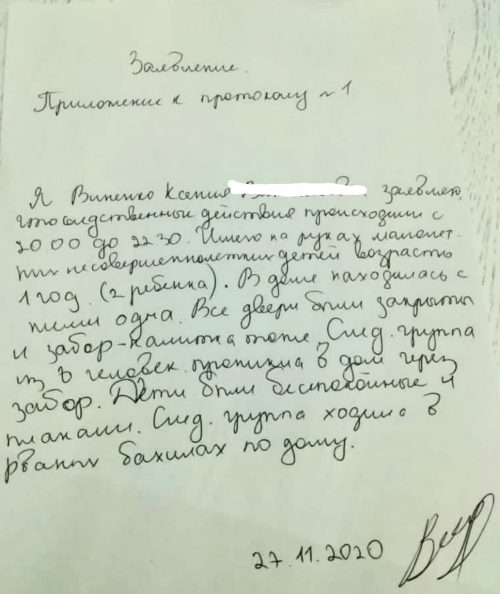 Заявление.
Приложение к протоколу №1
Я Виненко Ксения заявляю,
что следственные действия происходили с
20 00 до 22 30. Имею на руках малолет-
них несовершеннолетних детей возрасть
1 год. (2 ребенка). В доме находилась с
ними одна. Все двери были закрыты
и забор-калитка тоже. След. группа
из 6 человек проникла в дом через
забор. Дети были беспокойные и
плакали. След. группа ходила в
рваных бахилах по дому.
27.11.2020